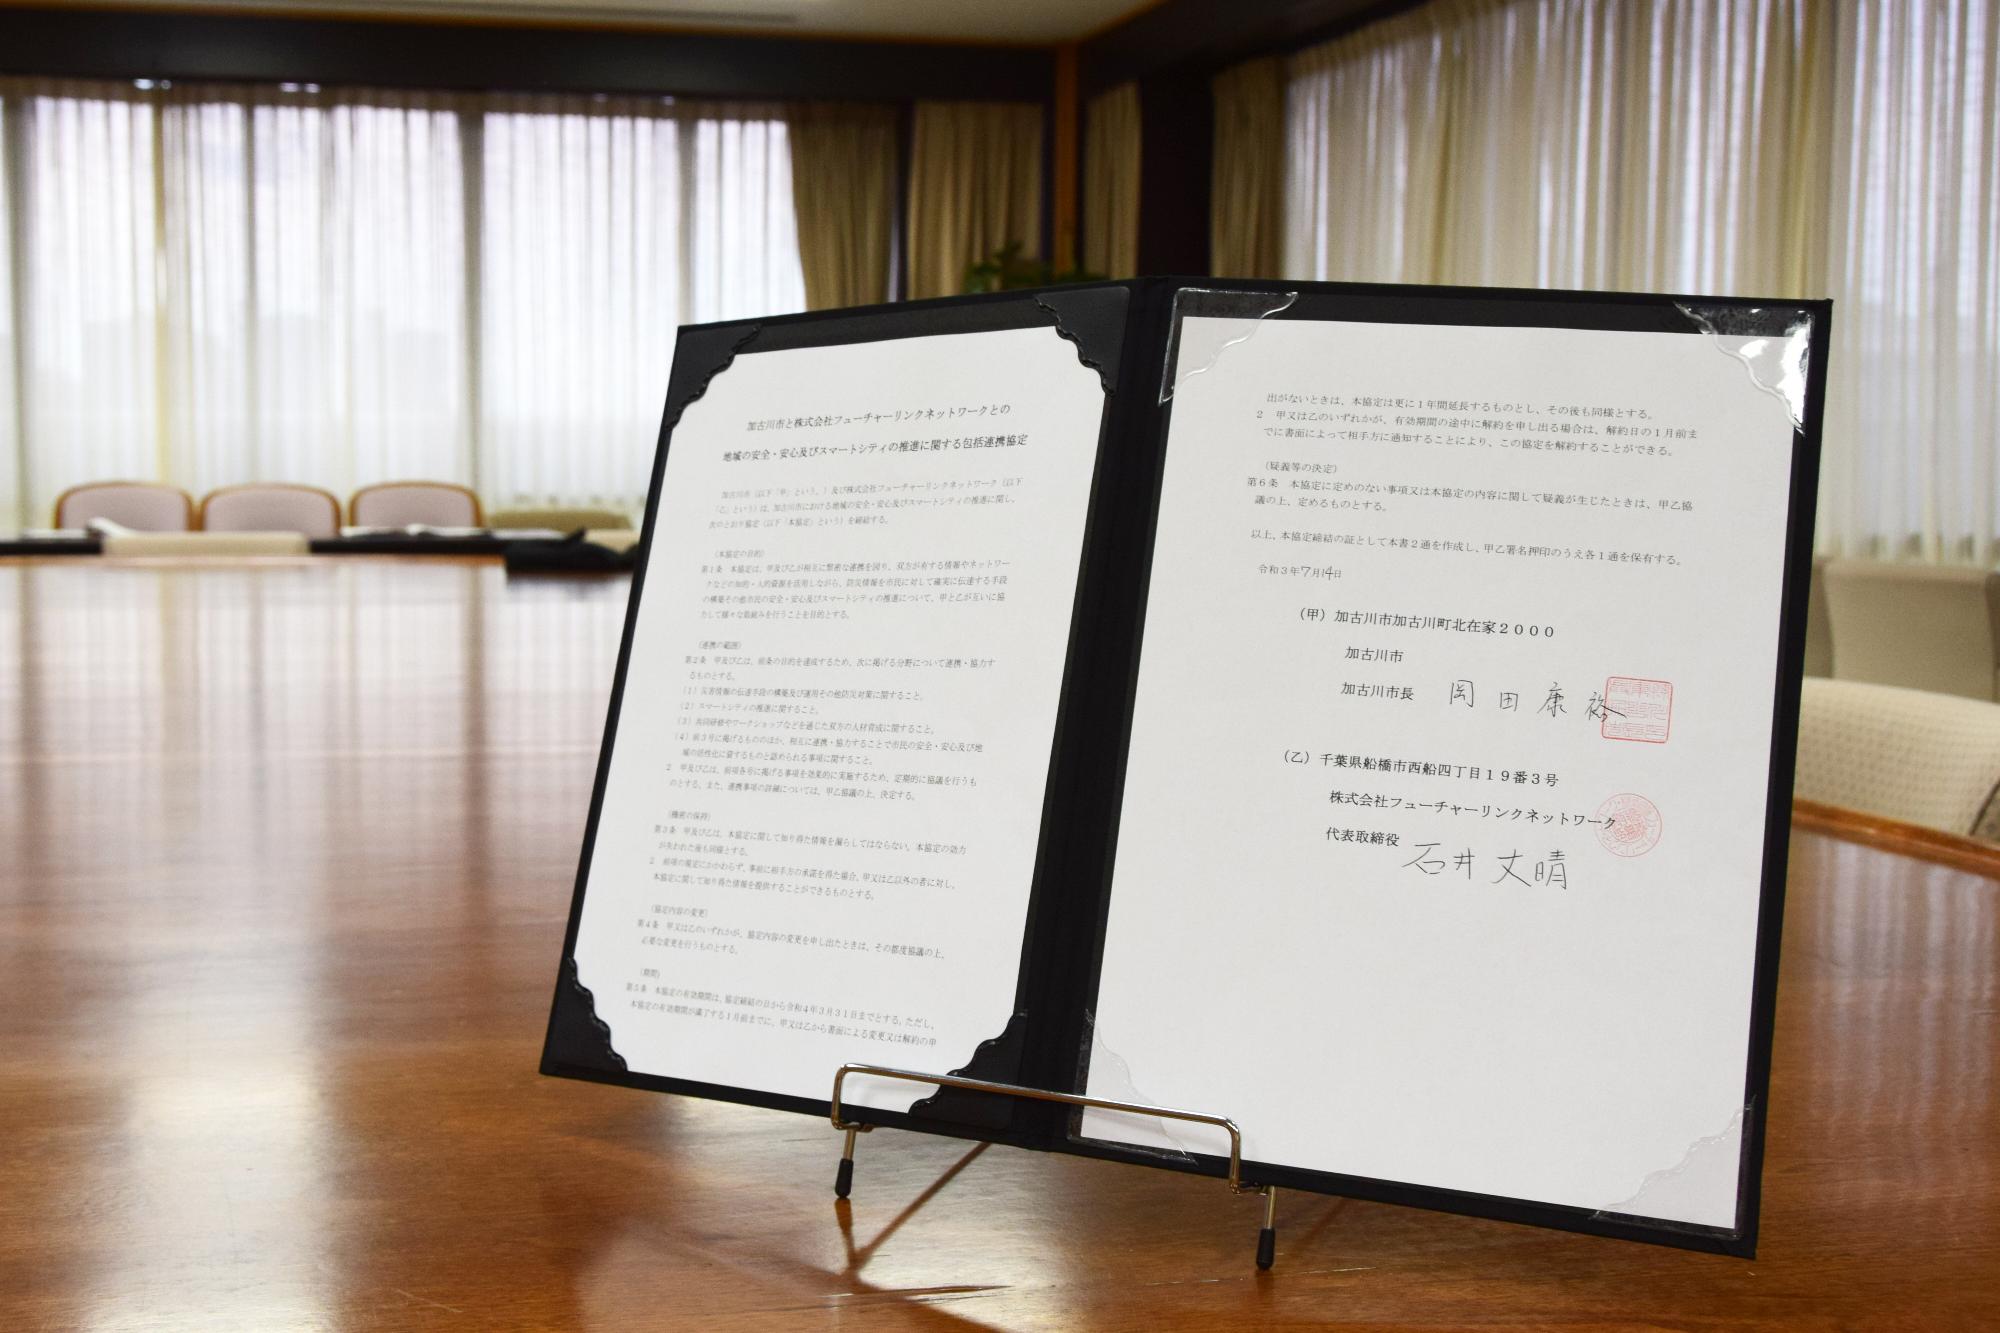 加古川市と株式会社フューチャーリンクネットワークとの
地域の安全・安心及びスマートシティの推進に関する包括連携協定
加古川市(以下「甲」という。)及び株式会社フューチャーリンクネットワーク(以下
「乙」という)は、加古川市における地域の安全・安心及びスマートシティの推進に関し、
次のとおり協定(以下「本協定」という)を締結する。
(本協定の目的)
第1条 本協定は、甲及び乙が相互に緊密な連携を図り、双方が有する情報やネットワー
クなどの知的・人的資源を活用しながら、防災情報を市民に対して確実に伝達する手段
の構築その他市民の安全・安心及びスマートシティの推進について、甲と乙が互いに協
力して様々な取組みを行うことを目的とする。
(連携の範囲)
第2条 甲及び乙は、前条の目的を達成するため、次に掲げる分野について連携・協力す
るものとする。
(1)災害情報の伝達手段の構築及び運用その他防災対策に関すること。
(2)スマートシティの推進に関すること。
(3)共同研修やワークショップなどを通じた双方の人材育成に関すること。
(4)前3号に掲げるもののほか、相互に連携・協力することで市民の安全・安心及び地
域の活性化に資するものと認められる事項に関すること。
2 甲及び乙は、前項各号に掲げる事項を効果的に実施するため、定期的に協議を行うも
のとする。また、連携事項の詳細については、甲乙協議の上、決定する。
(機密の保持)
第3条 甲及び乙は、本協定に関して知り得た情報を漏らしてはならない。本協定の効力
が失われた後も同様とする。
2 前項の規定にかかわらず、事前に相手方の承諾を得た場合、甲又は乙以外の者に対し、
本協定に関して知り得た情報を提供することができるものとする。
(協定内容の変更)
第4条 甲又は乙のいずれかが、協定内容の変更を申し出たときは、その都度協議の上、
必要な変更を行うものとする。
(期間)
第5条 本協定の有効期間は、協定締結の日から令和4年3月31日までとする。ただし、
本協定の有効期間が満了する1月前までに、甲又は乙から書面による変更又は解約の申
出がないときは、本協定は更に1年間延長するものとし、その後も同様とする。
2 甲又は乙のいずれかが、有効期間の途中に解約を申し出る場合は、解約日の1月前ま
でに書面によって相手方に通知することにより、この協定を解約することができる。
(疑義等の決定)
第6条 本協定に定めのない事項又は本協定の内容に関して疑義が生じたときは、甲乙協
議の上、定めるものとする。
以上、本協定締結の証として本書2通を作成し、甲乙署名押印のうえ各1通を保有する。
令和3年7月14日
(甲)加古川市加古川町北在家2000
加古川市
加古川市長 岡田康裕
(乙)千葉県船橋市西船四丁目19番3号
株式会社フューチャーリンクネットワーク
代表取締役 石井丈晴